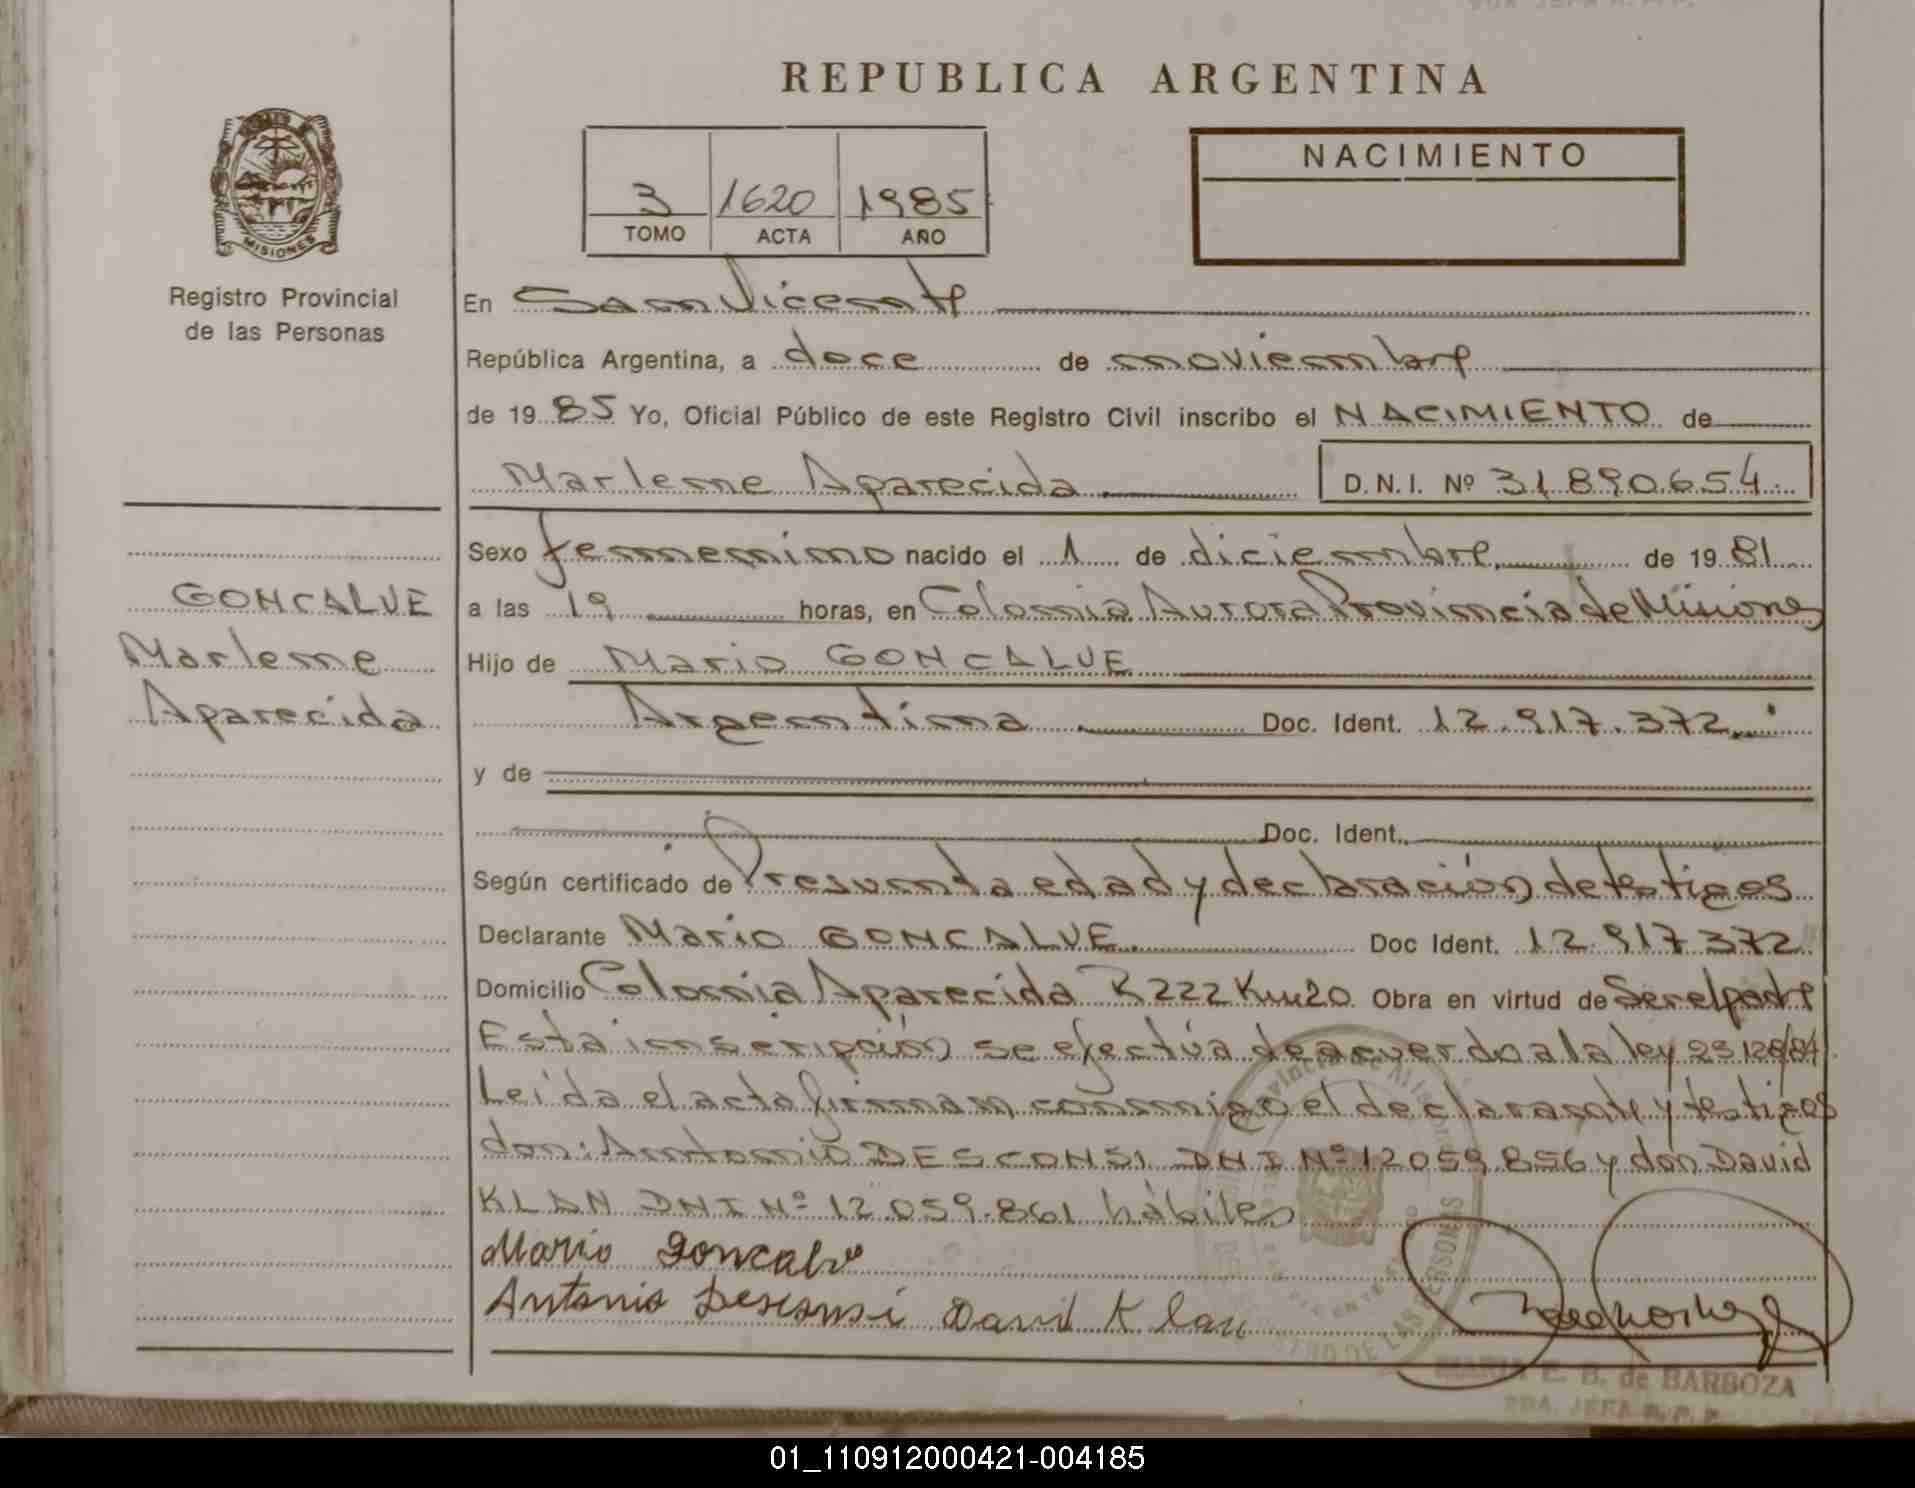 REPUBLICA ARGENTINA
MISIONES
Registro Provincial
de las Personas
3 1620 1985
TOMO ACTA AÑO
NACIMIENTO
En San Vicente
República Argentina, a doce de noviembre
de 1985 Yo, Oficial Público de este Registro Civil inscribo el NACIMIENTO de
Marlene Aparecida D.N.I. Nº 31.890.654
Sexo femenino nacido el 1 de diciembre de 1981
GONCALVE
Marlene
Aparecida
a las 19 horas, en Colonia Aurora Provincia de Misiones
Hijo de Mario GONCALVE
Argentina Doc. Ident. 12.917.372
y de
Doc. Ident.
Según certificado de Presunta edad y declaración de testigos
Declarante Mario GONCALVE Doc Ident. 12.917.372
Domicilio Colonia Aparecida R 222 Km 20 Obra en virtud de Ser el padre
Esta inscripción se efectúa de acuerdo a la ley 23128/84
Leída el acta firman conmigo el declarante y testigos
don: Antonio DESCONSI DNI Nº 12.059.856 y don David
KLAN DNI Nº 12.059.861 hábiles
Mario Goncalve
Antonio Desconsi David Klan
MARIA E. B. de BARBOZA
01_110912000421-004185